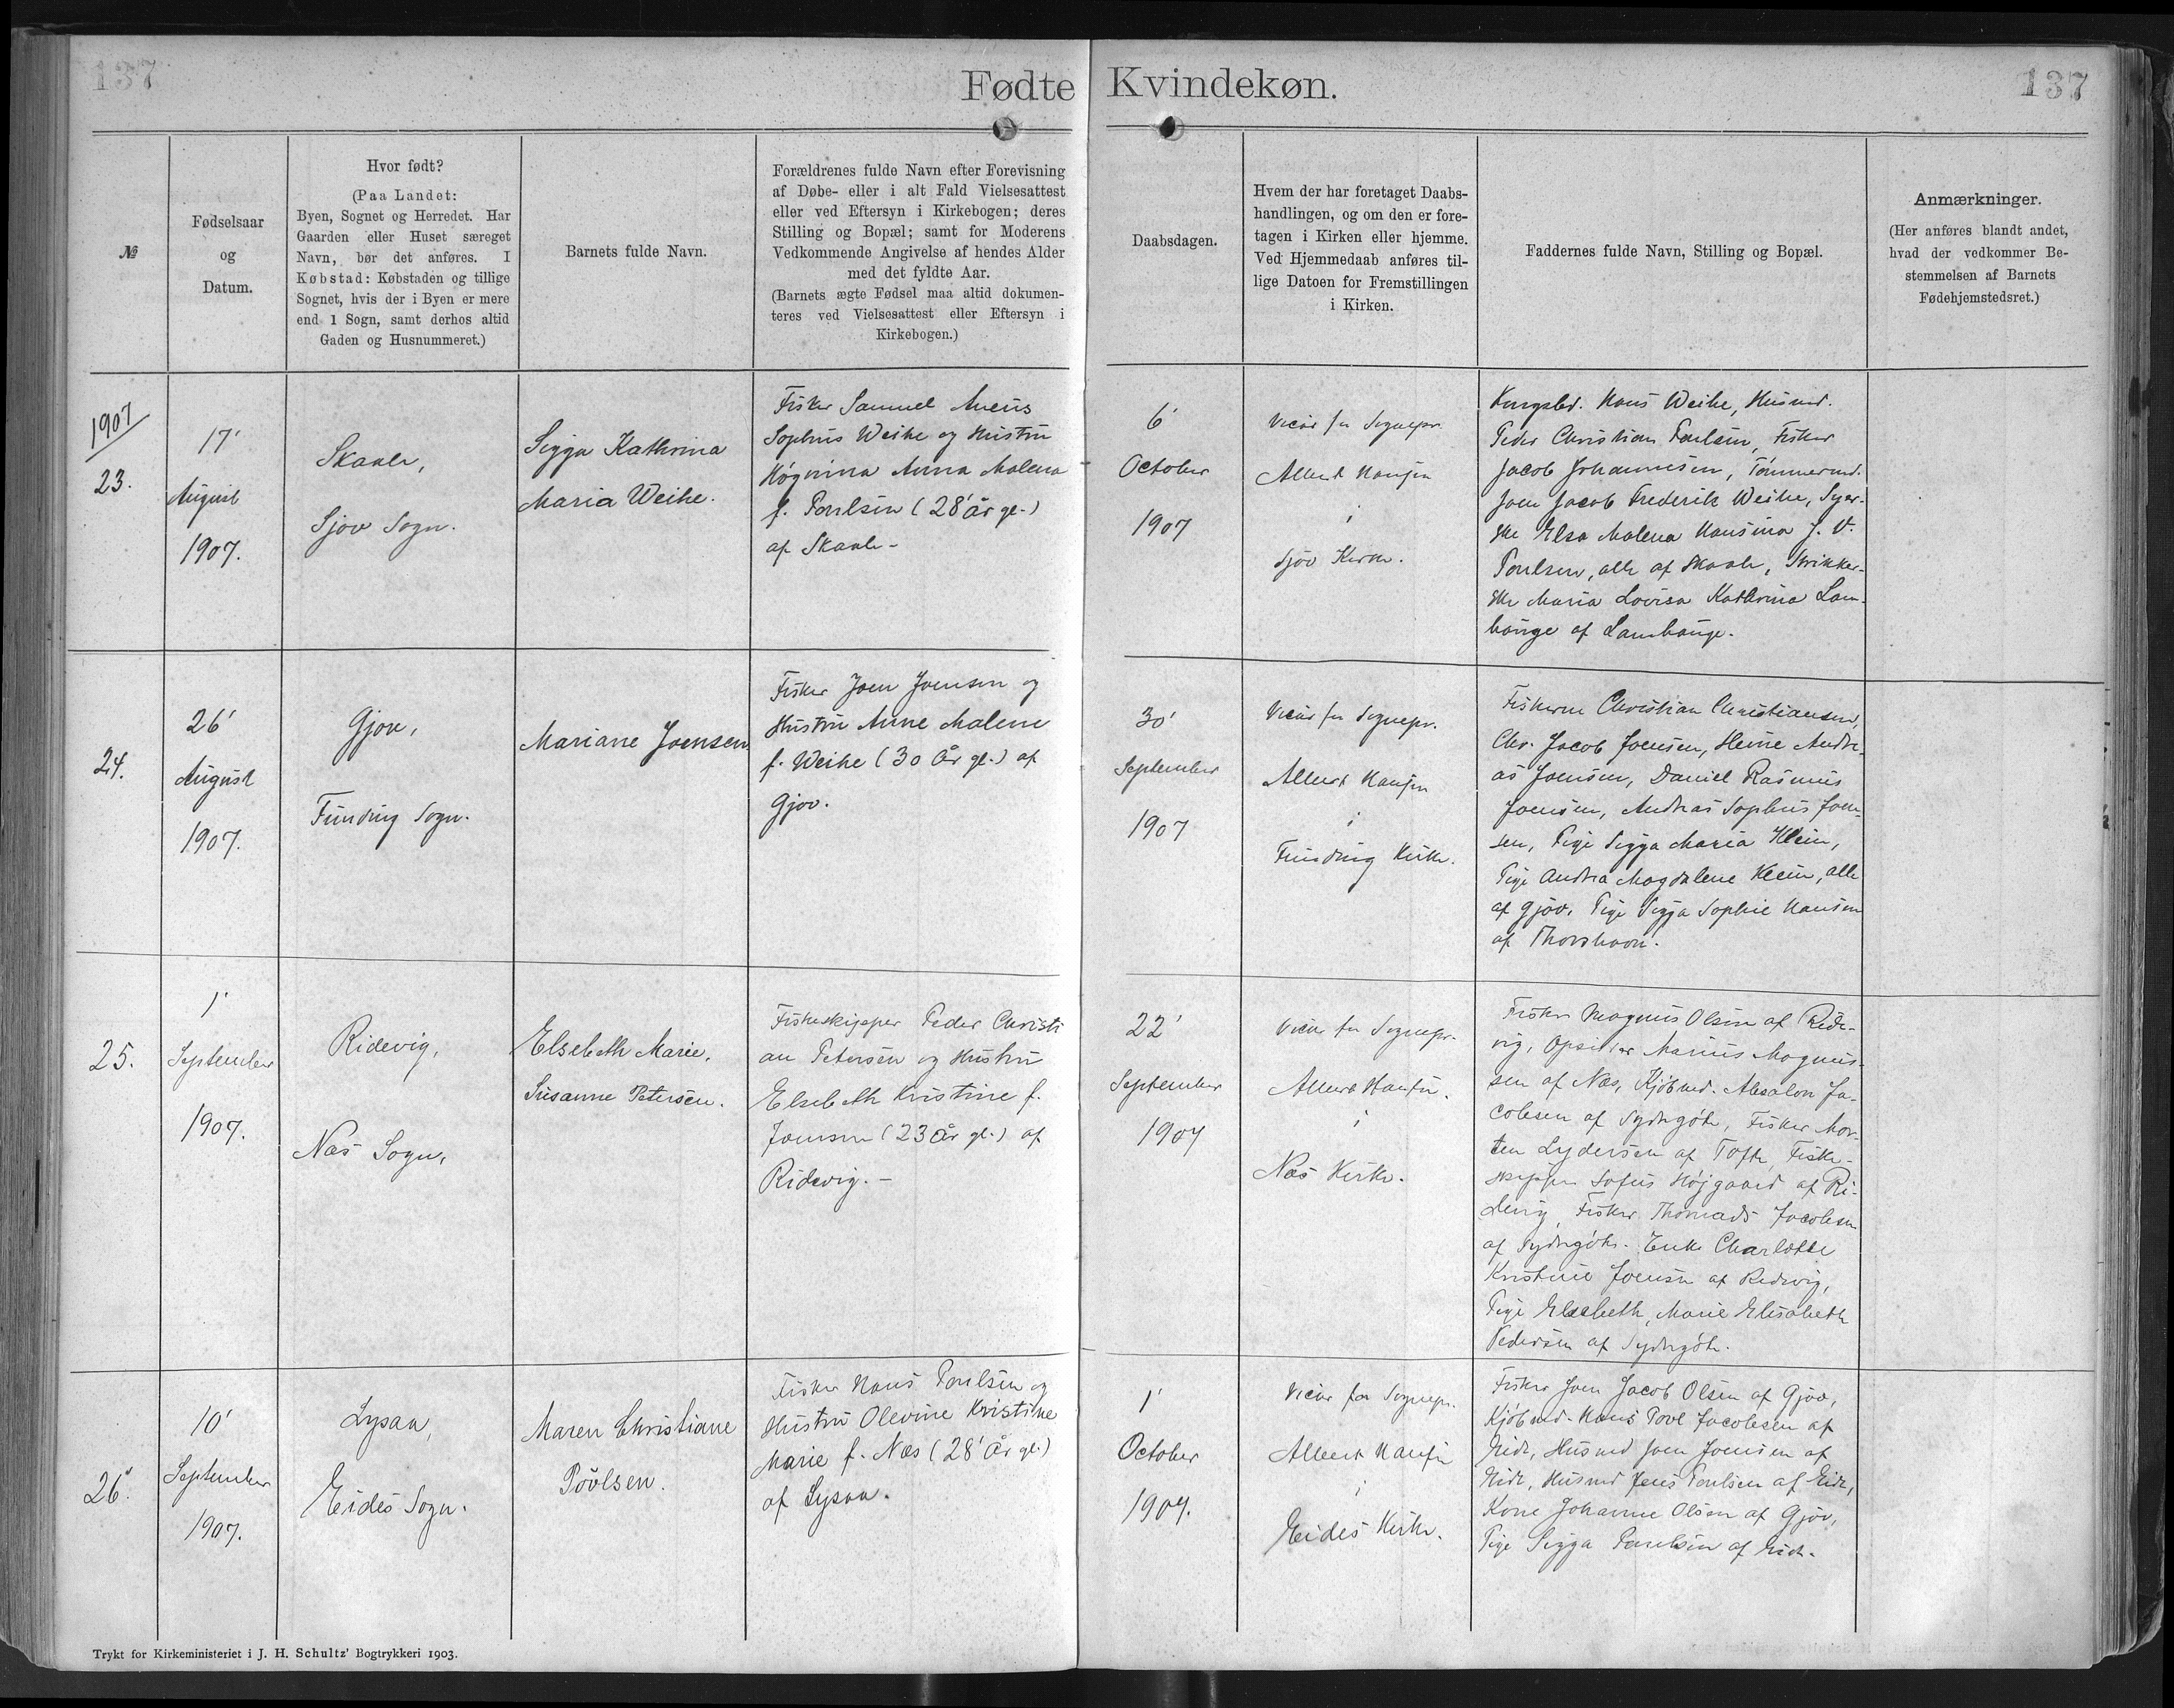 137
Fødte Kvindekøn.
137
№
Fødselsaar
og
Datum.
Hvor født?
(Paa Landet:
Byen, Sognet og Herredet. Har
Gaarden eller Huset særeget
Navn, bør det anføres. I
Købstad: Købstaden og tillige
Sognet, hvis der i Byen er mere
end 1 Sogn, samt derhos altid
Gaden og Husnummeret.)
Barnets fulde Navn.
Forældrenes fulde Navn efter Forevisning
af Døbe- eller i alt Fald Vielsesattest
eller ved Eftersyn i Kirkebogen; deres
Stilling og Bopæl; samt for Moderens
Vedkommende Angivelse af hendes Alder
med det fyldte Aar.
(Barnets ægte Fødsel maa altid dokumen-
teres ved Vielsesattest eller Eftersyn i
Kirkebogen.)
Daabsdagen.
Hvem der har foretaget Daabs-
handlingen, og om den er fore-
tagen i Kirken eller hjemme.
Ved Hjemmedaab anføres til-
lige Datoen for Fremstillingen
i Kirken.
Faddernes fulde Navn, Stilling og Bopæl.
Anmærkninger.
(Her anføres blandt andet,
hvad der vedkommer Be-
stemmelsen af Barnets
Fødehjemstedsret.)
1907
23.
17'
August
1907.
Skaale,
Sjov Sogn.
Sigga Kathrina
Maria Weihe.
Fisker Samuel
Sophus Weihe og Hustru
Høgnina Anna Malena
f. Poulsen (28' år gl.)
af Skaale -
6'
October
1907
Vicar for Sognepr.
Albert Hansen
i
Sjóv Kirke.
Kongsbd. Hans Weihe, Husmd.
Peder Christian Poulsen, Fisker
Jacob Johannesen, Tömmermd.
Joen Jacob Frederik Weihe, Syer-
ske Elsa Malena Hansina J. V.
Poulsen, alle af Skaale, Strikker-
ske Maria Lovisa Kathrina Lam-
hauge af Lamhauge.
24.
26'
August
1907.
Gjov,
Funding Sogn.
Mariane Joensen
Fisker Joen Joensen og
Hustru Anne Malene
f. Weihe (30 år gl.) af
Gjov.
30'
September
1907
Vicar for Sognepr.
Albert Hansen
i
Funding Kirke.
Fiskerne Christian Christiansen,
Chr. Jacob Joensen, Heine Andre-
as Joensen, Daniel Rasmus
Joensen, Andreas Sophus Joen-
sen, Pige Sigga Maria Klein,
Pige Andrea Magdalene Klein, alle
af Gjóv, Pige Sigga Sophie Hansen
af Thorshavn.
25.
1'
September
1907.
Ridevig,
Næs Sogn,
Elsebeth Marie,
Susanne Petersen.
Fiskeskipper Peder Christi
an Petersen og Hustru
Elsebeth Kristine f.
Joensen (23 år gl.) af
Ridevig. -
22'
September
1907
Vicar for Sognepr.
Albert Hansen.
i
Næs Kirke.
Fisker Magnus Olsen af Ride-
vig, Opsidder Marius Magnus-
sen af Næs, Kjöbmd. Absalon Ja-
cobsen af Sydrgöte, Fisker Mor-
ten Lydersen af Tofte, Fiske-
skipper Sofus Højgaard af Ri-
devig, Fisker Thomads Jacobsen
af Sydrgöte. Enke Charlotte
Kristine Joensen af Ridevig,
Pige Elsebeth Marie Elisabeth
Pedersen af Sydrgöte.
26.
10'
September
1907.
Lysan,
Eides Sogn.
Maren Christiane
Póvlsen.
Fisker Hans Poulsen og
Hustru Olevine Kristine
Marie f. Næs (28' år gl.)
af Lysan.
1'
October
1907.
Vicar for Sognepr.
Albert Hansen
i
Eides Kirke.
Fisker Joen Jacob Olsen af Gjov,
Kjöbmd. Hans Povl Jacobsen af
Eide, Husmd Joen Joensen af
Eide, Husmd Jens Poulsen af Eide,
Kone Johanne Olsen af Gjov,
Pige Sigga Poulsen af Eide.
Trykt for Kirkeministeriet i J. H. Schultz' Bogtrykkeri 1903.